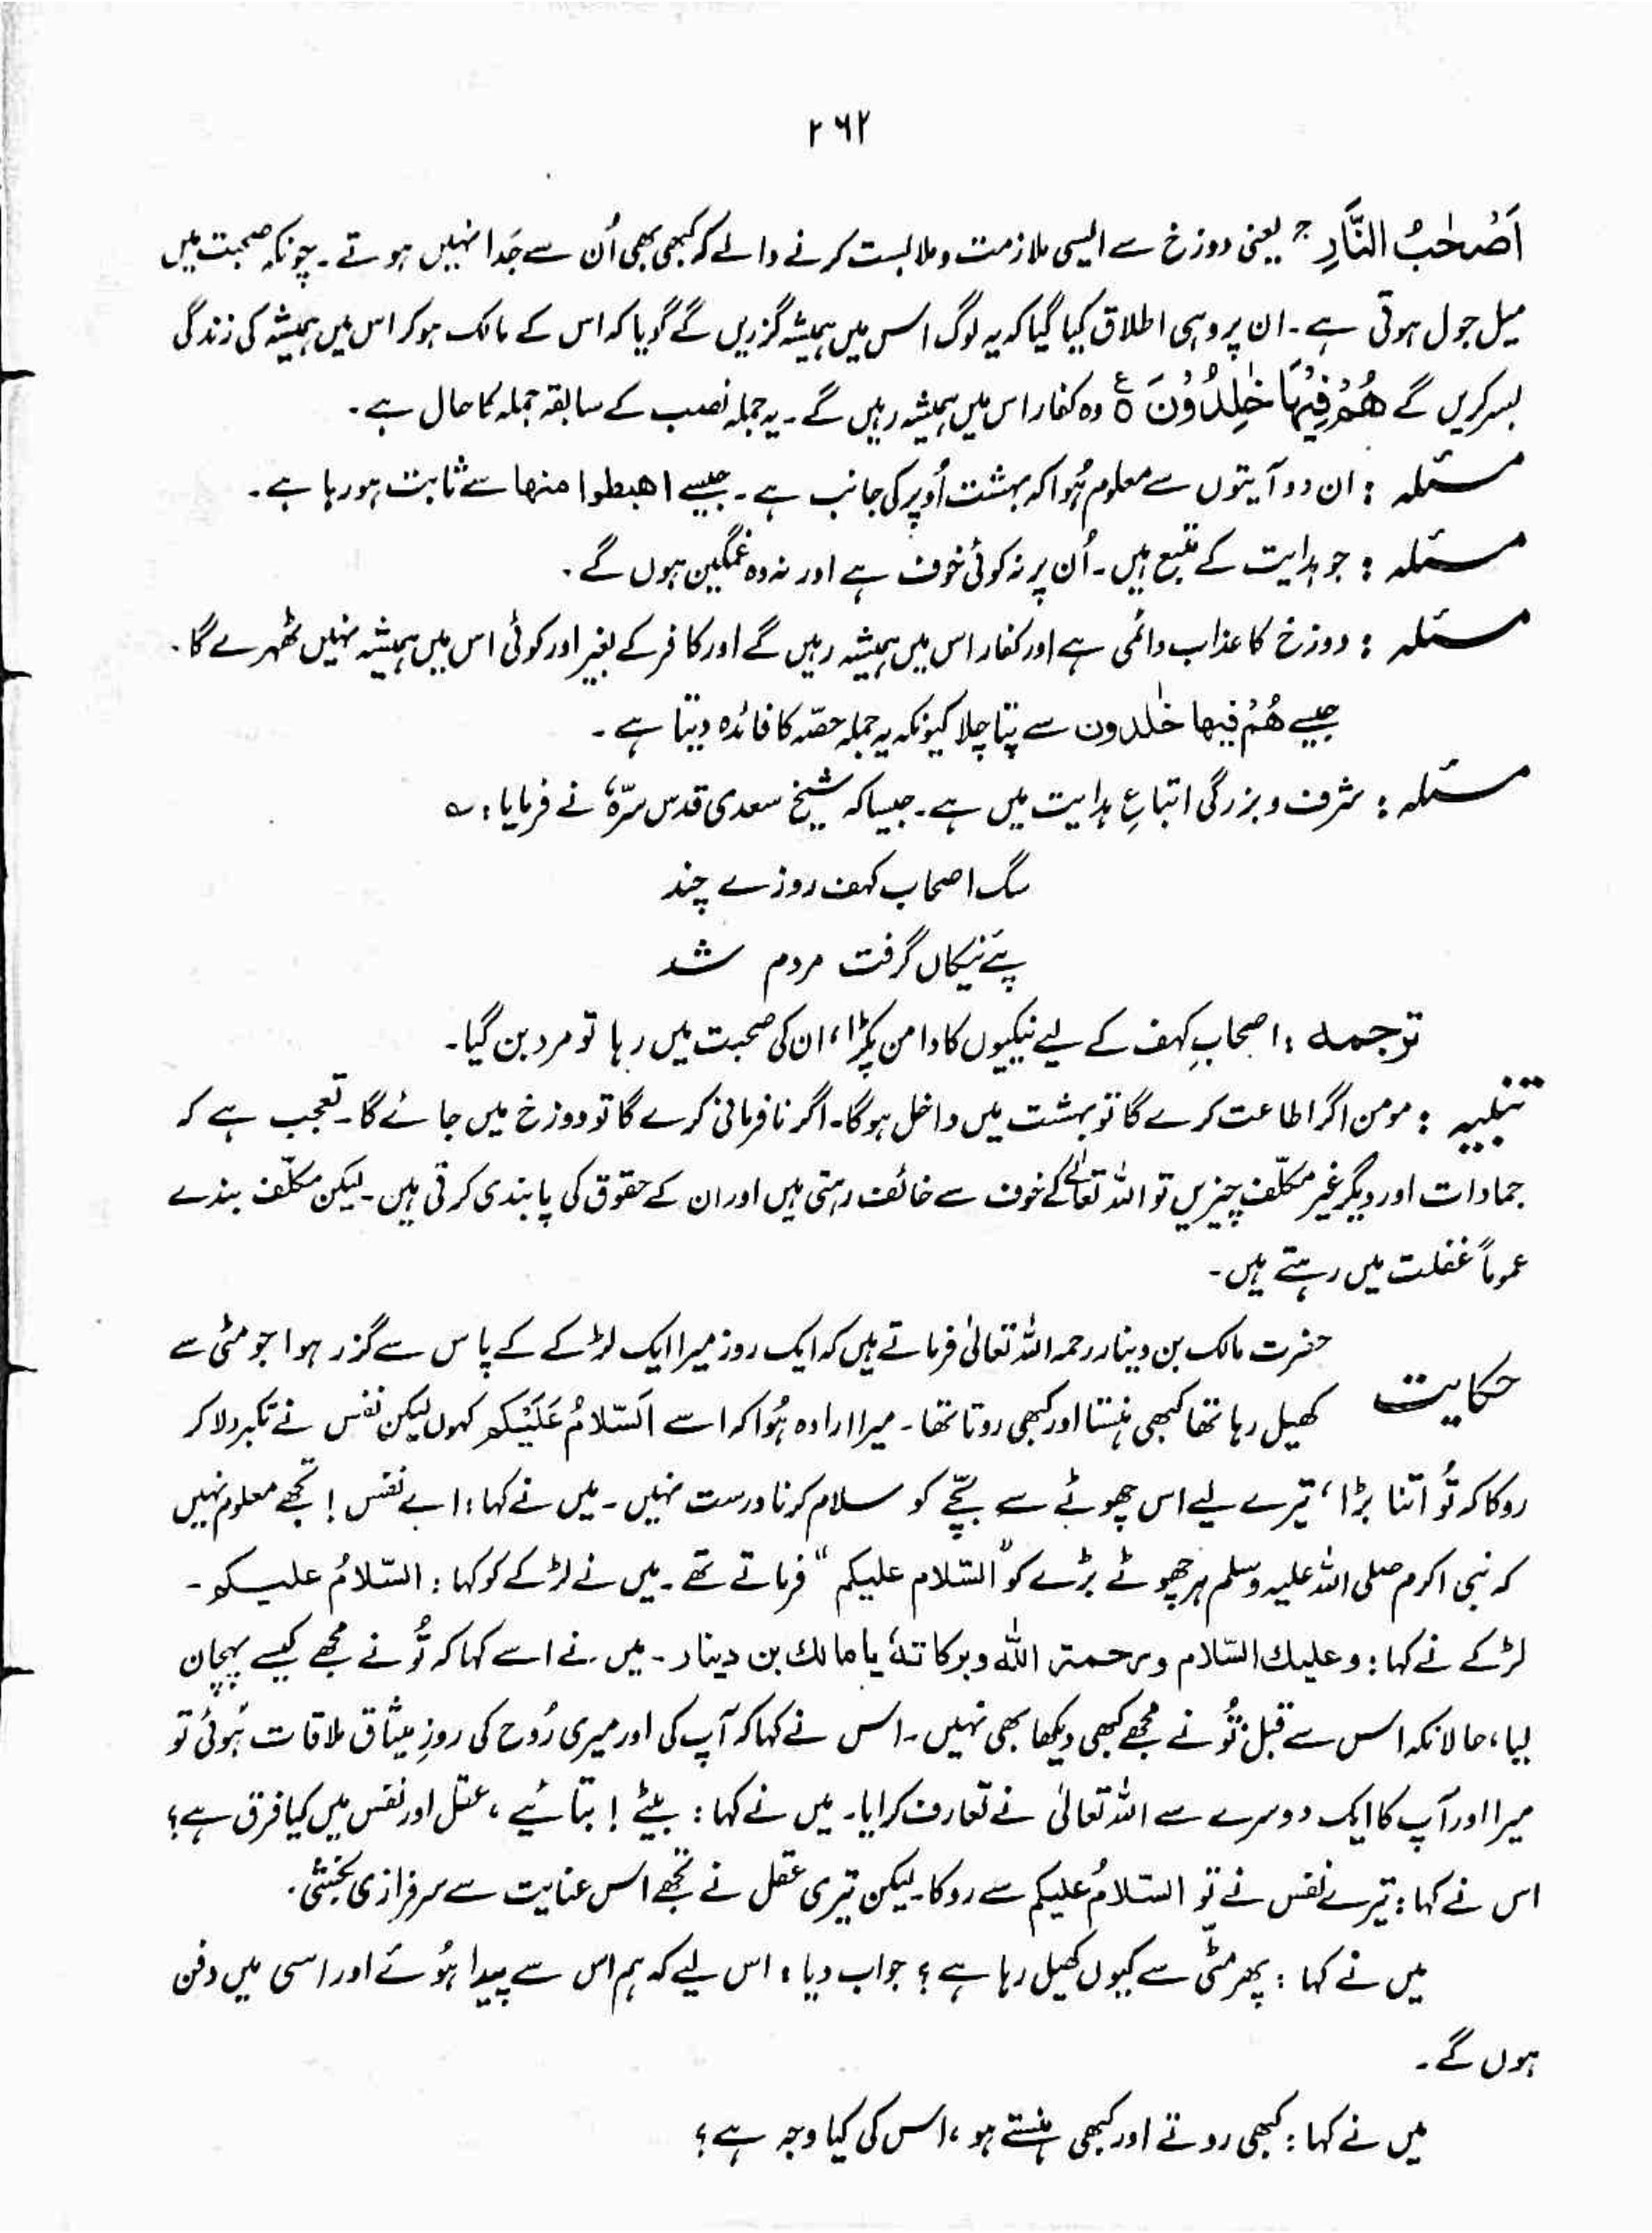 ۲۶۲
اَصْحٰبُ النَّارِ ج یعنی دوزخ سے ایسی ملازمت وملابست کرنے والے کہ کبھی بھی اُن سے جُدا نہیں ہوتے۔ چونکہ صحبت میں
میل جول ہوتی ہے۔ ان پر وہی اطلاق کیا گیا کہ یہ لوگ اس میں ہمیشہ گزریں گے گویا کہ اس کے مالک ہوکر اس میں ہمیشہ کی زندگی
بسر کریں گے هُمْ فِيْهَا خٰلِدُوْنَ ۝ ع وہ کفار اس میں ہمیشہ رہیں گے۔ یہ جملہ نصب کے سابقہ جملہ کا حال ہے۔
مسئلہ : ان دو آیتوں سے معلوم ہُوا کہ بہشت اُوپر کی جانب ہے۔ جیسے اھبطوا منھا سے ثابت ہورہا ہے۔
مسئلہ : جو ہدایت کے متبع ہیں۔ اُن پر نہ کوئی خوف ہے اور نہ وہ غمگین ہوں گے۔
مسئلہ : دوزخ کا عذاب دائمی ہے اور کفار اس میں ہمیشہ رہیں گے اور کافر کے بغیر اور کوئی اس میں ہمیشہ نہیں ٹھہرے گا۔
جیسے هُمْ فیها خٰلدون سے پتا چلا کیونکہ یہ جملہ حصّہ کا فائدہ دیتا ہے۔
مسئلہ : شرف و بزرگی اتباعِ ہدایت میں ہے۔ جیسا کہ شیخ سعدی قدس سرّہٗ نے فرمایا : ؎
سگ اصحاب کہف روزے چند
پئے نیکاں گرفت مردم شد
ترجمہ : اصحابِ کہف کے لیے نیکیوں کا دامن پکڑا، ان کی صحبت میں رہا تو مرد بن گیا۔
تنبیہ : مومن اگر اطاعت کرے گا تو بہشت میں داخل ہوگا۔ اگر نافرمانی کرے گا تو دوزخ میں جائے گا۔ تعجب ہے کہ
جمادات اور دیگر غیر مکلّف چیزیں تو اللہ تعالٰی کے خوف سے خائف رہتی ہیں اور ان کے حقوق کی پابندی کرتی ہیں۔ لیکن مکلّف بندے
عموماً غفلت میں رہتے ہیں۔
حکایت حضرت مالک بن دینار رحمہ اللہ تعالیٰ فرماتے ہیں کہ ایک روز میرا ایک لڑکے کے پاس سے گزر ہوا جو مٹی سے
کھیل رہا تھا کبھی ہنستا اور کبھی روتا تھا۔ میرا ارادہ ہُوا کہ اسے اَلسّلامُ عَلَیْکم کہوں لیکن نفس نے تکبر دلا کر
روکا کہ تُو اتنا بڑا، تیرے لیے اس چھوٹے سے بچّے کو سلام کرنا درست نہیں۔ میں نے کہا : اے نفس ! تجھے معلوم نہیں
کہ نبی اکرم صلی اللہ علیہ وسلم ہر چھوٹے بڑے کو "السّلام علیکم" فرماتے تھے۔ میں نے لڑکے کو کہا : السّلامُ علیکم۔
لڑکے نے کہا : وعلیك السّلام ورحمة الله وبركاتهٗ یا مالك بن دینار۔ میں نے اسے کہا کہ تُو نے مجھے کیسے پہچان
لیا، حالانکہ اس سے قبل تُو نے مجھے کبھی دیکھا بھی نہیں۔ اس نے کہا کہ آپ کی اور میری رُوح کی روزِ میثاق ملاقات ہُوئی تو
میرا اور آپ کا ایک دوسرے سے اللہ تعالیٰ نے تعارف کرایا۔ میں نے کہا : بیٹے ! بتائیے، عقل اور نفس میں کیا فرق ہے؟
اس نے کہا : تیرے نفس نے تو السّلامُ علیکم سے روکا۔ لیکن تیری عقل نے تجھے اس عنایت سے سرفرازی بخشی۔
میں نے کہا : پھر مٹّی سے کیوں کھیل رہا ہے؟ جواب دیا : اس لیے کہ ہم اس سے پیدا ہُوئے اور اسی میں دفن
ہوں گے۔
میں نے کہا : کبھی روتے اور کبھی ہنستے ہو، اس کی کیا وجہ ہے؟